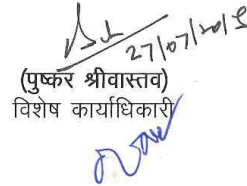 27/07/2019
(पुष्कर श्रीवास्तव)
विशेष कार्याधिकारी